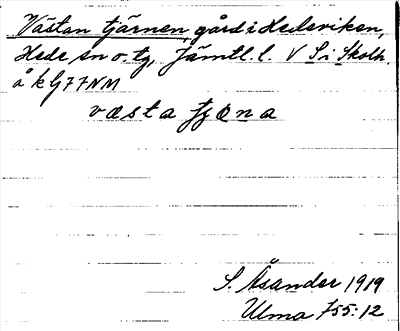 Västan tjärnen, gård i Hedeviken,
Hede sn o. tg, Jämtl. l. V S i Skolh.
å k G77NM
væsta tjæna
S. Åsander 1919
Ulma 755:12